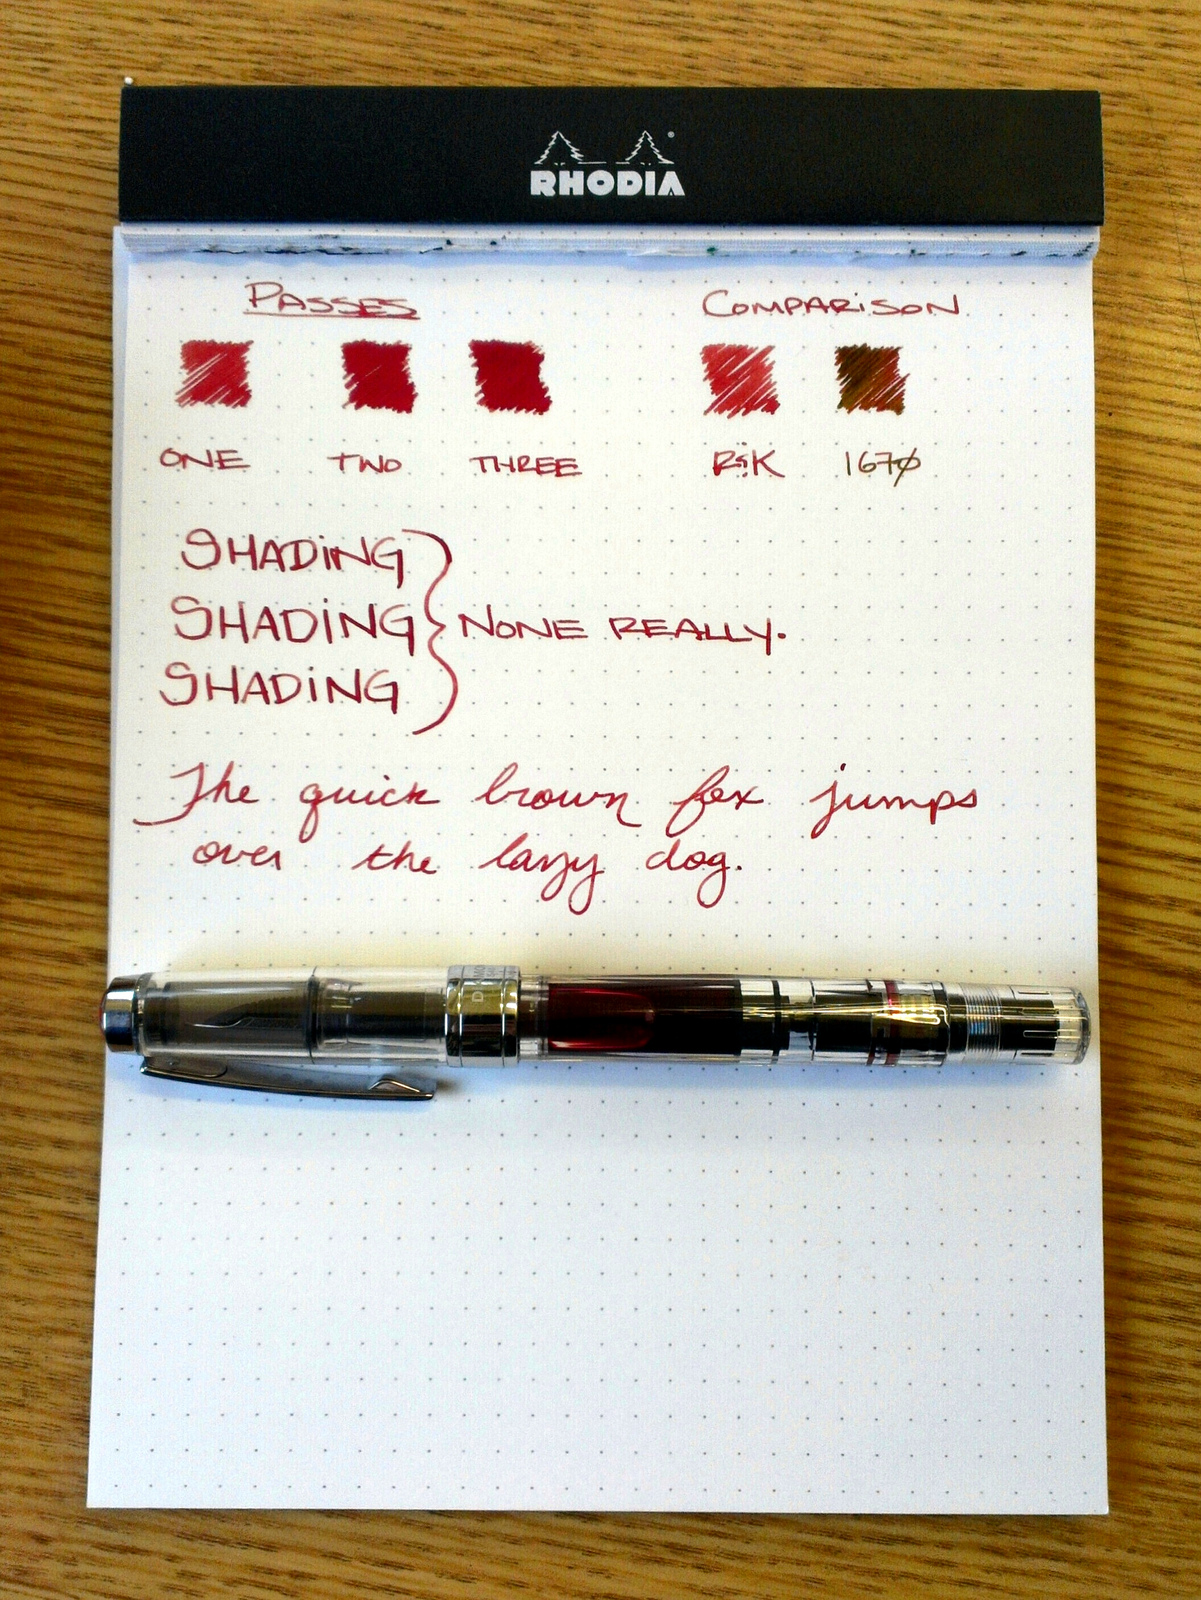 RHODIA
PASSES
COMPARISON
ONE TWO THREE
R&K 1670
SHADING
SHADING
SHADING
NONE REALLY.
The quick brown fox jumps
over the lazy dog.